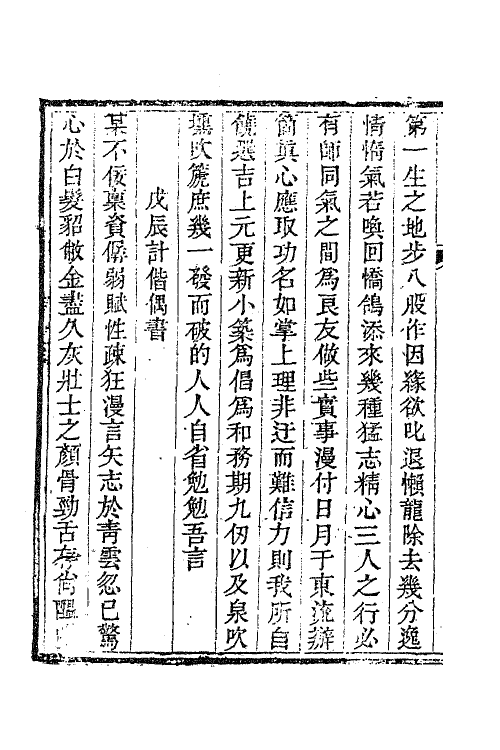 第一生之地步八股作因緣欲叱退懶龍除去幾分逸
情惰氣若喚回憍鴿添來幾種猛志精心三人之行必
有師同氣之間爲良友做些實事漫付日月于東流辦
箇眞心應取功名如掌上理非迂而難信力則我所自
饒選吉上元更新小築爲倡爲和務期九仞以及泉吹
壎吹箎庶幾一發而破的人人自省勉勉吾言
戊辰計偕偶書
某不佞稟資僝弱賦性疎狂漫言矢志於靑雲忽已驚
心於白髮貂敝金盡久灰壯士之顏骨勁舌存尙